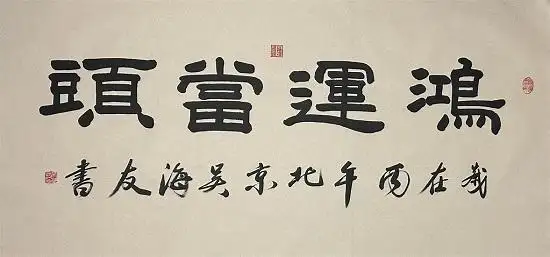 鴻運當頭
歲在丙午北京吴海友書